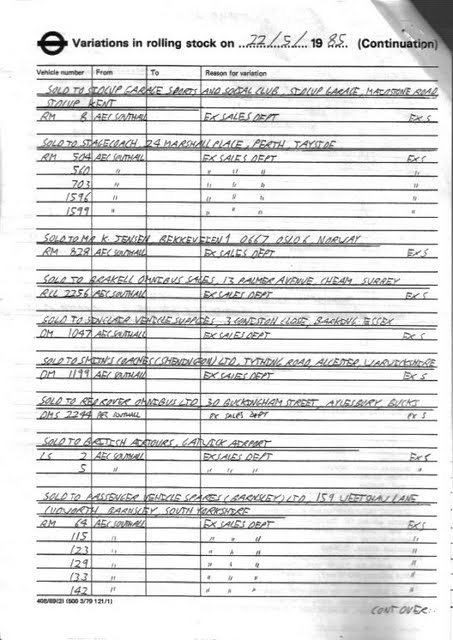 Variations in rolling stock on 22/5/ 1985. (Continuation)
Vehicle number From To Reason for variation
SOLD TO SIDCUP GARAGE SPORTS AND SOCIAL CLUB, SIDCUP GARAGE, MAIDSTONE ROAD,
SIDCUP KENT
RM 8 AEC SOUTHALL EX SALES DEPT EX S
SOLD TO STAGECOACH, 24 MARSHALL PLACE, PERTH, TAYSIDE
RM 504 AEC SOUTHALL EX SALES DEPT EX S
560 " " " " "
703 " " " " "
1596 " " " " "
1599 " " " " "
SOLD TO MR K. JENSEN, BEKKEVEIEN 1 0667 OSLO 6, NORWAY
RM 828 AEC SOUTHALL EX SALES DEPT EX S
SOLD TO BRAKELL OMNIBUS SALES, 13 PALMER AVENUE, CHEAM, SURREY
RCL 2256 AEC SOUTHALL EX SALES DEPT EX S
SOLD TO SINCLAIR VEHICLE SUPPLIES, 3 CONISTON CLOSE, BARKING ESSEX
DM 1047 AEC SOUTHALL EX SALES DEPT EX S
SOLD TO SMITH'S COACHES (SHENINGTON) LTD, TYTHING ROAD, ALCESTER, WARWICKSHIRE
DM 1199 AEC SOUTHALL EX SALES DEPT EX S
SOLD TO RED ROVER OMNIBUS LTD, 30 BUCKINGHAM STREET, AYLESBURY, BUCKS
DMS 2244 AEC SOUTHALL EX SALES DEPT EX S
SOLD TO BRITISH AIRTOURS, GATWICK AIRPORT
LS 2 AEC SOUTHALL EX SALES DEPT EX S
5 " " " " "
SOLD TO PASSENGER VEHICLE SPARES (BARNSLEY) LTD, 159 WEETSHAW LANE,
CUDWORTH, BARNSLEY, SOUTH YORKSHIRE
RM 64 AEC SOUTHALL EX SALES DEPT EX S
115 " " " " "
123 " " " " "
129 " " " " "
133 " " " " "
142 " " " " "
CONT OVER